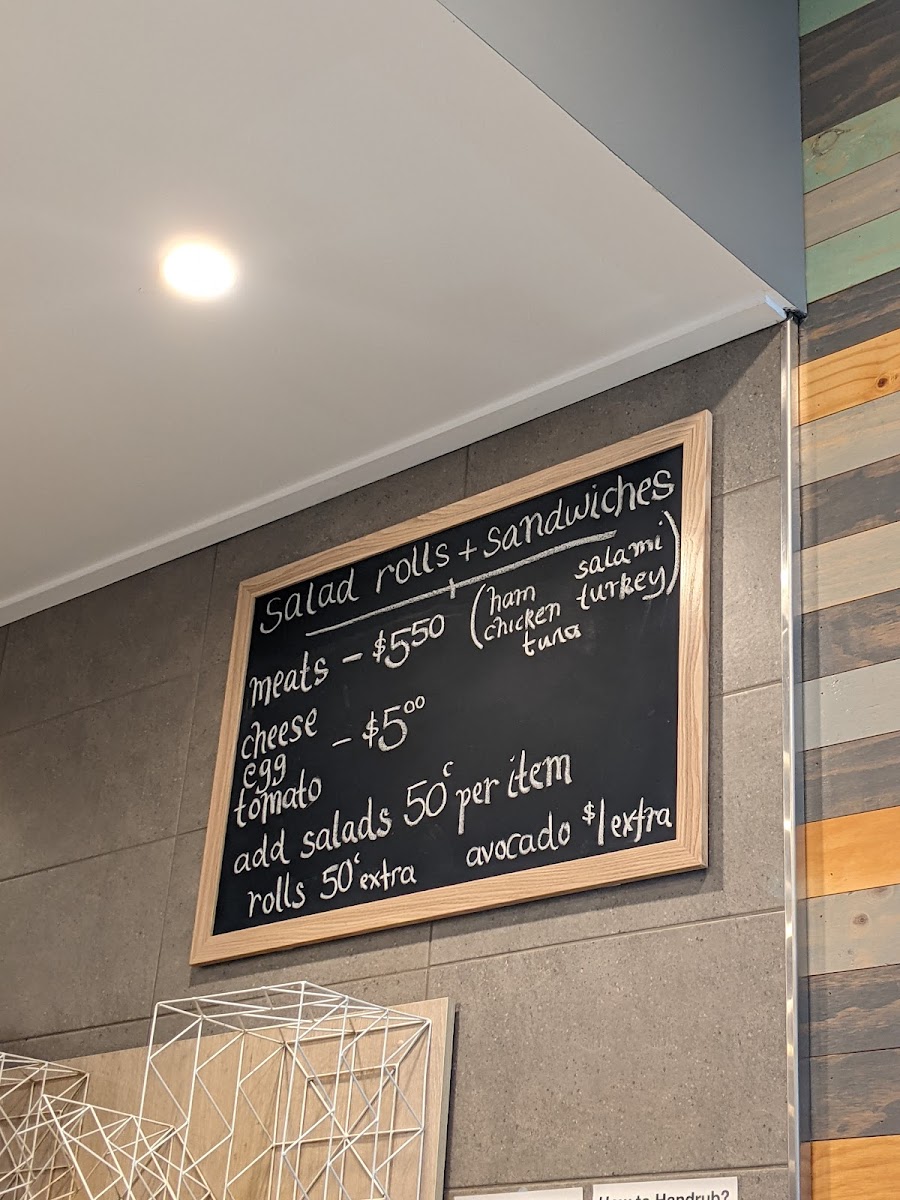 Salad rolls + sandwiches
meats - $5.50 (ham salami
chicken turkey)
tuna
cheese
egg - $5.00
tomato
add salads 50c per item
rolls 50c extra avocado $1 extra
How to Handrub?